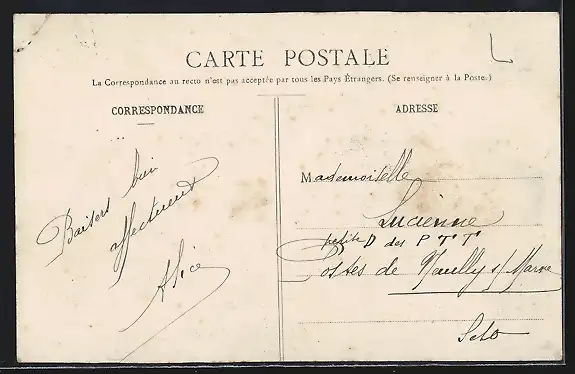 CARTE POSTALE
La Correspondance au recto n'est pas acceptée par tous les Pays Étrangers. (Se renseigner à la Poste.)
CORRESPONDANCE
Baisers bien
affectueux
Alice
ADRESSE
Mademoiselle
Lucienne
petite D des P T T
Postes de Neuilly s/ Marne